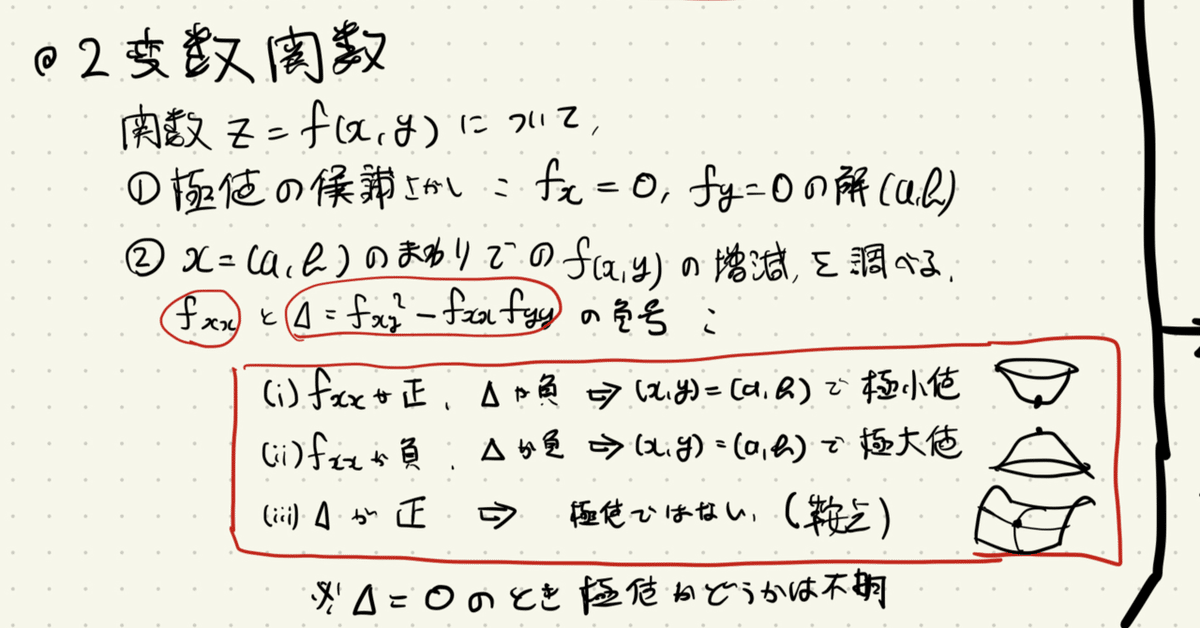 @ 2変数関数
関数 z = f(x, y) について,
① 極値の候補さがし : fx = 0, fy = 0 の解 (a, b)
② x = (a, b) のまわりでの f(x, y) の増減を調べる.
fxx と Δ = fxy² - fxx fyy の負号 :
(i) fxxが正, Δが負 ⇨ (x, y) = (a, b) で極小値
(ii) fxxが負, Δが負 ⇨ (x, y) = (a, b) で極大値
(iii) Δが正 ⇨ 極値ではない. (鞍点)
※ Δ = 0 のとき極値かどうかは不明